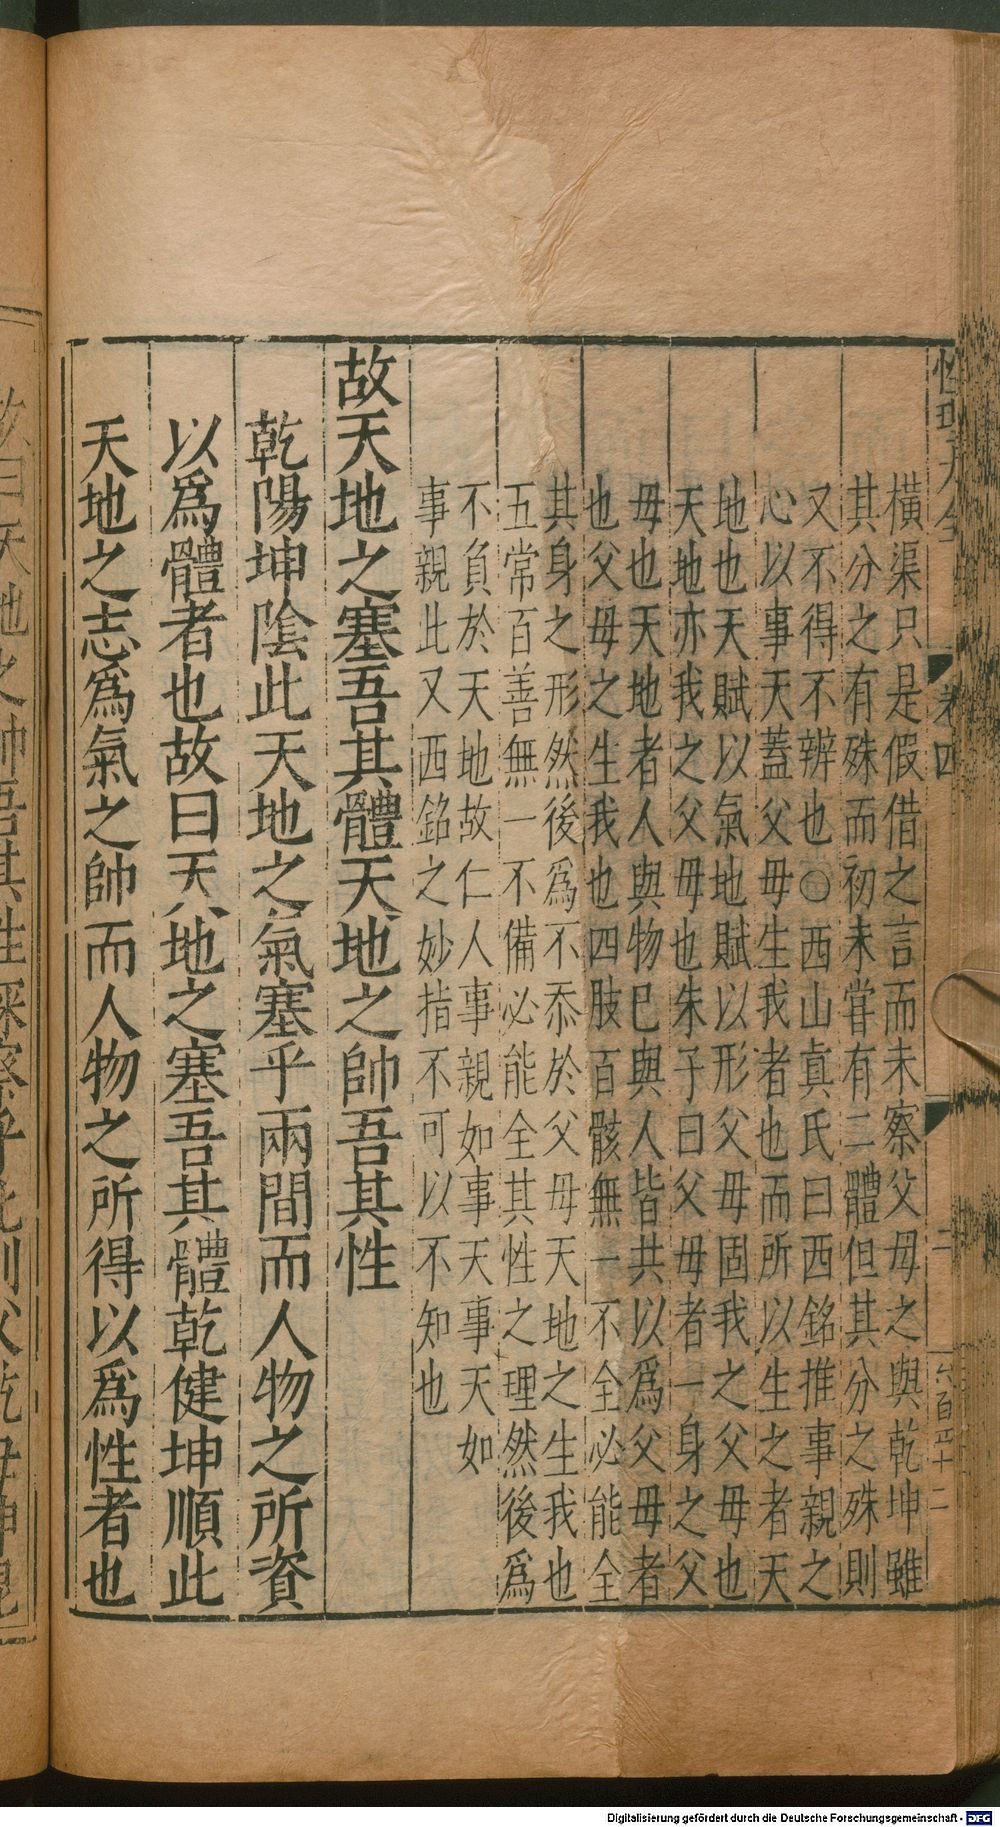 性理大全 卷四 二 六百四十二
橫渠只是假借之言而未察父母之與乾坤雖
其分之有殊而初未嘗有二體但其分之殊則
又不得不辨也○西山真氏曰西銘推事親之
心以事天蓋父母生我者也而所以生之者天
地也天賦以氣地賦以形父母固我之父母也
天地亦我之父母也朱子曰父母者一身之父
母也天地者人與物巳與人皆共以為父母者
也父母之生我也四肢百骸無一不全必能全
其身之形然後為不忝於父母天地之生我也
五常百善無一不備必能全其性之理然後為
不負於天地故仁人事親如事天事天如
事親此又西銘之妙指不可以不知也
故天地之塞吾其體天地之帥吾其性
乾陽坤陰此天地之氣塞乎兩間而人物之所資
以爲體者也故曰天地之塞吾其體乾健坤順此
天地之志爲氣之帥而人物之所得以爲性者也
故曰天地之帥吾其性深察乎此則父乾母坤
Digitalisierung gefördert durch die Deutsche Forschungsgemeinschaft - DFG